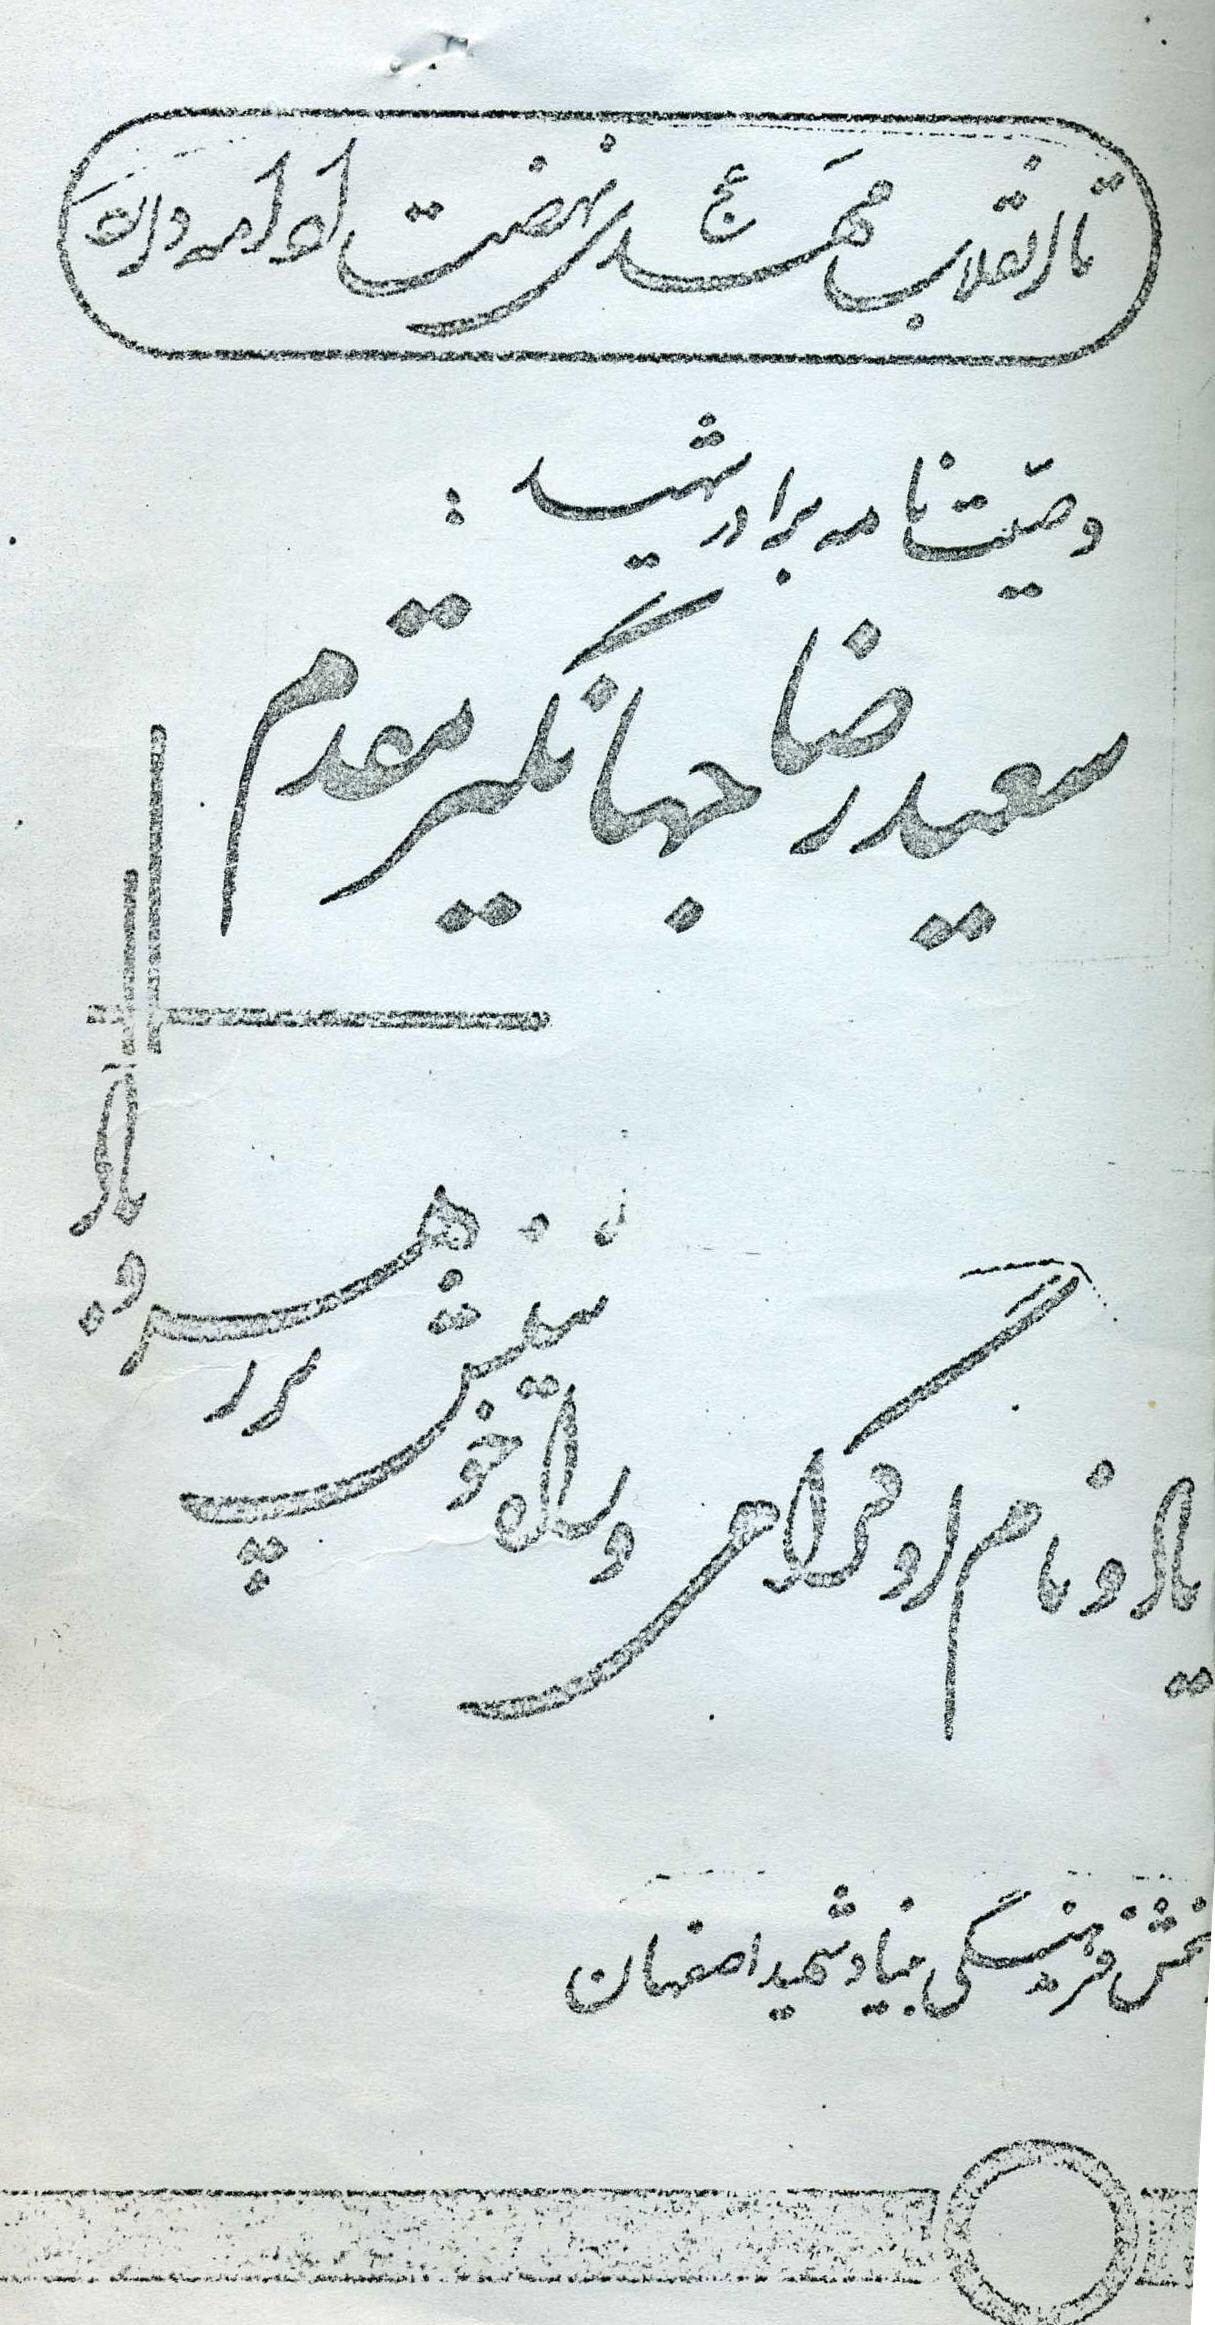 تا انقلاب مهدی عج نهضت ادامه دارد
وصیّتنامه برادر شهید :
سعید رضا جهانگیر مقدم
یاد و نام او گرامی
و راه خونینش پر رهرو باد
بخش فرهنگی بنیاد شهید اصفهان